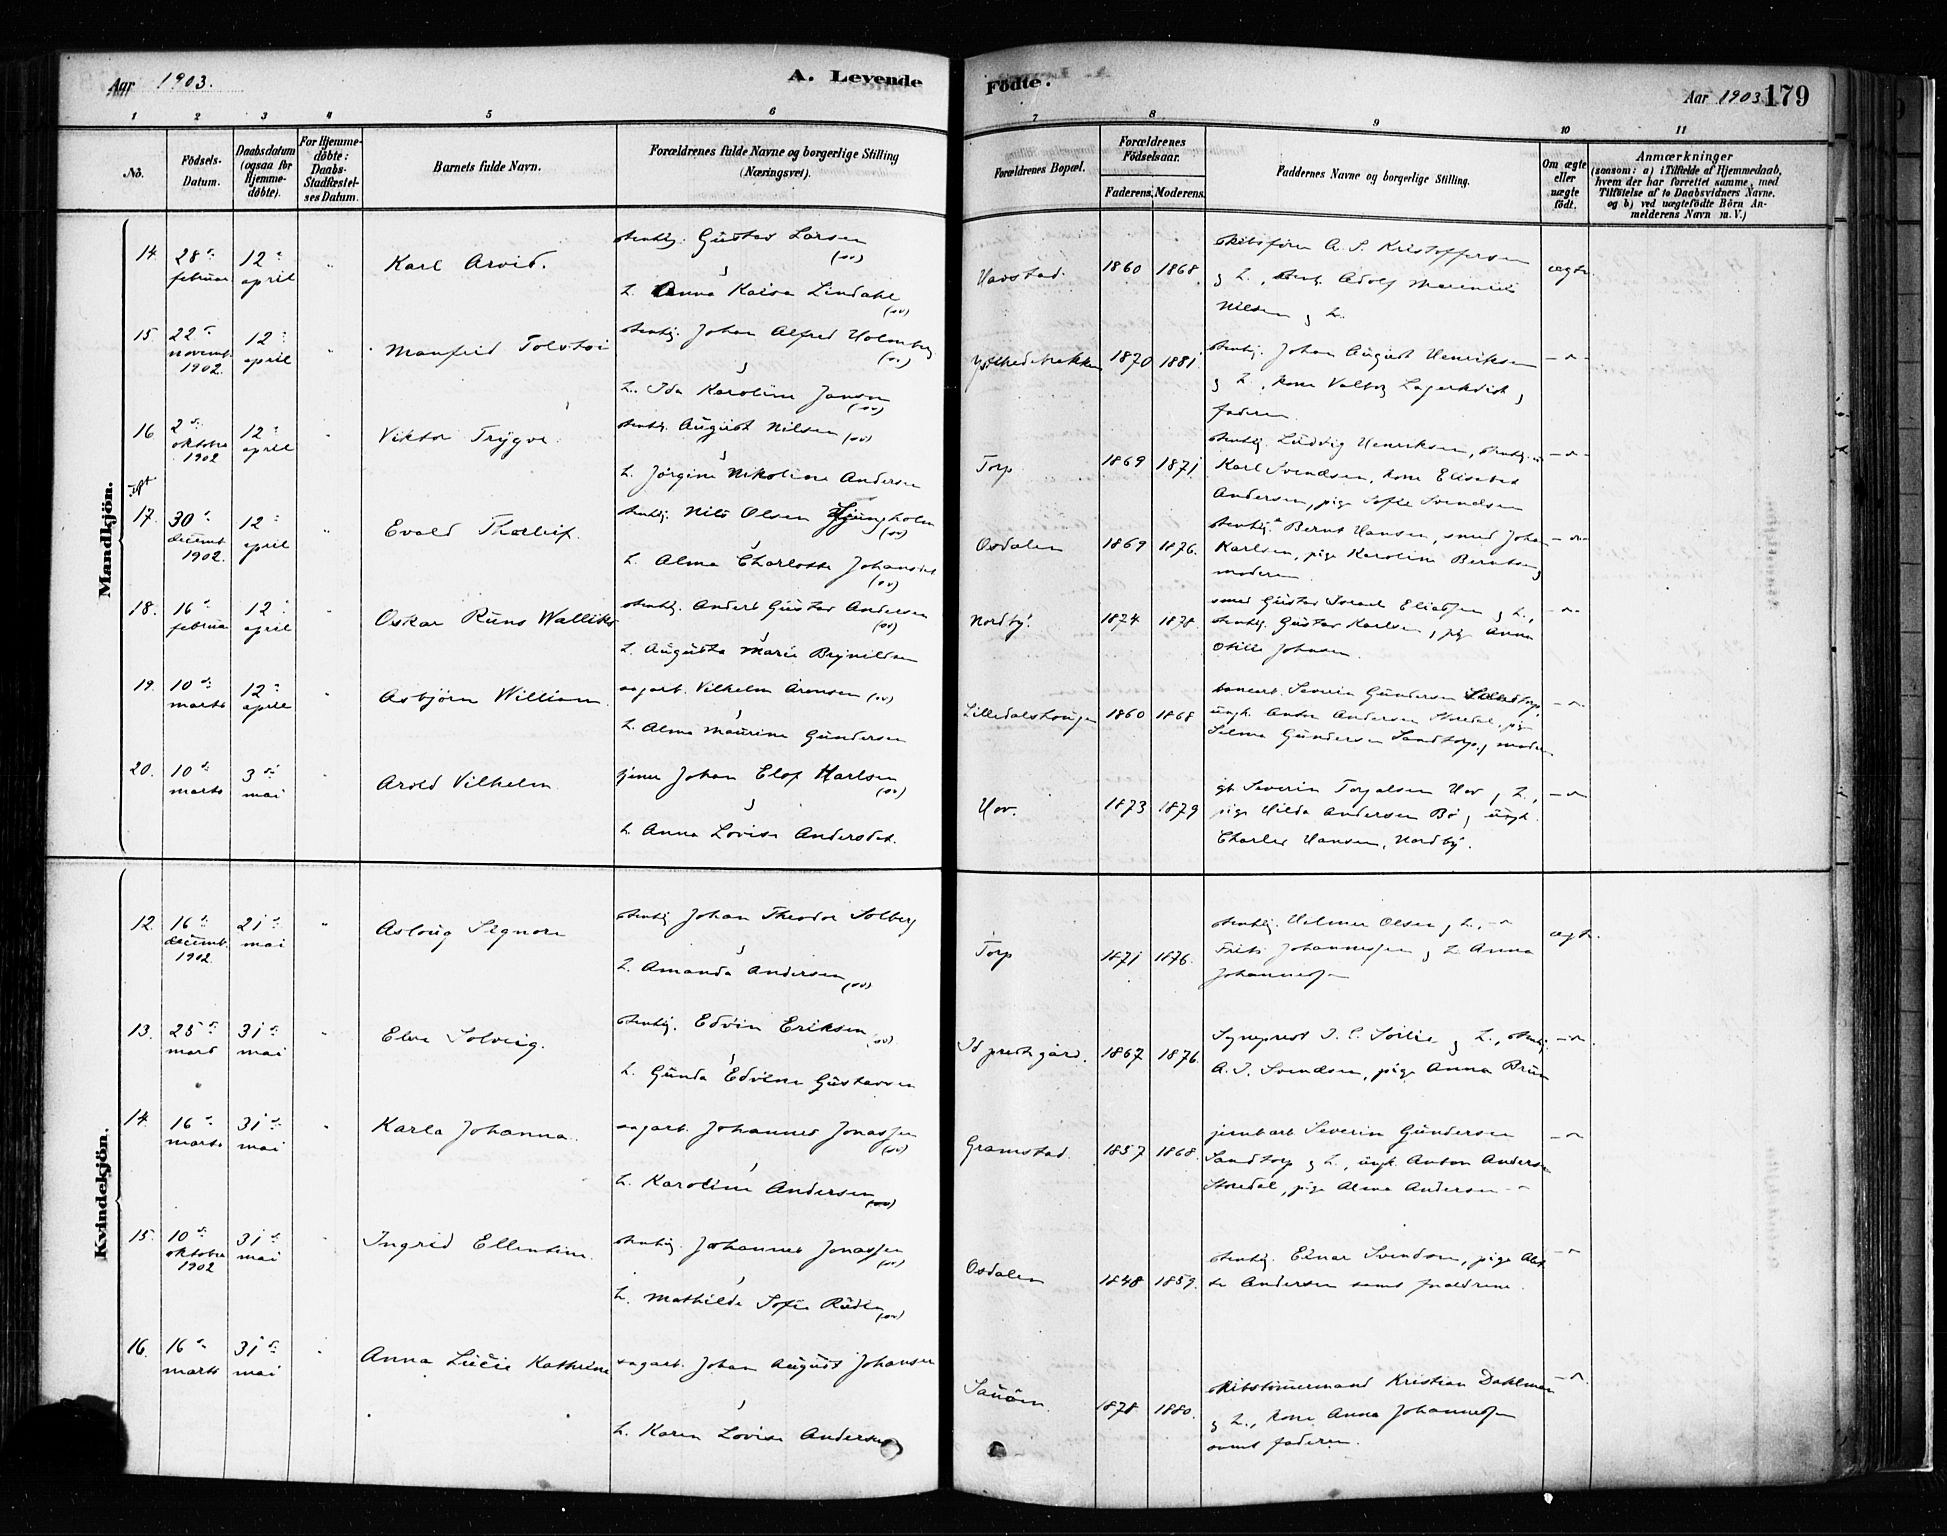 Aar 1903.
A. Levende
Födte.
Aar 1903 179
1 2 3 4 5 6 7 8 9 10 11
No.
Födsels-
Datum.
Daabsdatum
(ogsaa for
Hjemme-
döbte).
For Hjemme-
döbte:
Daabs-
Stadfæstel-
ses Datum.
Barnets fulde Navn.
Forældrenes fulde Navne og borgerlige Stilling
(Næringsvei).
Forældrenes Bopæl.
Forældrenes
Födselsaar.
Faderens. Moderens.
Faddernes Navne og borgerlige Stilling.
Om ægte
eller
uægte
født.
Anmærkninger
(saasom: a) i Tilfælde af Hjemmedaab,
hvem der har forrettet samme, med
Tilföielse af to Daabsvidners Navne.
og b) ved uægtefödte Börn An-
melderens Navn m. V.)
Mandkjön.
14. 28de februar
12te april
Karl Arvid.
stenhg. Gustav Larsen
(sv)
h. Anna Kaisa Lindahl
(sv)
Havstad.
1860 1868
A. S. Kristoffersen
g h., stenh. Adolf
Nilsen g h.
ægte
15. 22de novemb. 1902.
12te april
Manfred Tolstoi
stenhg. Johan Alfred Holmberg
(sv)
h. Ida Karoline Janson
(sv)
1870 1881
stenhg. Johan August Henriksen
g h., kone Valborg Lagerkvist g
faderen.
16 2de oktobr 1902
12te april
Viktor Trygve
stenhg. August Nilsen (sv)
h. Jörgine Nikoline Andersen
Torp
1869 1871
stenhg. Ludvig Henriksen, stenhg.
Karl Svendsen, kone Elisabet
Andersen, pige Sofie Svendsen
17. 30te decemb. 1902.
12te april
Evald Thorleif.
stenhg. Nils Olsen Ljungholm
(sv)
h. Alma Charlotte Johansdet
(sv)
Osdalen
1869 1876.
stenhg. Bernt Hansen, smed Johan
Karlsen, pige Karoline Berntsen g
moderen.
18. 16de februar
12te april
Oskar Runo Wallike
stenhg. Andert Gustav Andersen
(sv)
h. Augusta Marie Brynildsen
Nordby.
1874 1878.
smed Gustav Israel Eliassen g h.,
stenhg. Gustav Karlsen, pige Anna
Otilie Johnsen.
19. 10de marts
12te april
Asbjörn William
sagarb. Vilhelm Arensen (sv)
h. Alma Maurine Gundersen
Lilledalshougen
1860 1868
banearb. Severin Gundersen
ungk. Anton Andersen Stordal, pige
Selma Gundersen Sandtorp g moderen
20. 10de marts
3die mai
Arold Vilhelm
tjener Johan Elof Karlsen
(sv)
h. Anna Lovise Andersdet.
Hov.
1873 1879
gb. Severin Torgalsen Hov g h.,
pige Hilda Andersen Bö g ungk.
Charles Hansen, Nordby.
Kvindekjön.
12. 16de decemb. 1902.
21de mai
Aslaug Signora
stenhg Johan Theodor Solberg
h. Amanda Andersen
(sv)
Torp
1871 1876.
stenhg. Hilmer Olsen g h.,
Frits Johannessen g h Anna
Johannessen
ægte.
13. 25de mars
31te mai
Elva Solveig.
stenhg. Edvin Eriksen
(sv)
h. Gunda Edvine Gustavsen
Id prestegård.
1867 1876.
Sogneprest J. C. g h., stenhg.
A. J. Svendsen, pige Anna Brun
14. 16de marts
31te mai
Karla Johanna
sagarb. Johannes Jonassen
(sv)
h. Karoline Andersen
(sv)
Gramstad.
1857 1868.
jernbarb Severin Gundersen
Sandtorp g h., ungk. Anton Andersen
Stordal, pige Alma Andersen
15. 10de oktobr 1902
31te mai
Ingrid Ellentine
stenhg. Johannes Jonassen
(sv)
h. Mathilde Sofie Rudin
(sv)
Osdalen
1848 1859.
stenhg. Einar Svendsen, pige
Andersen samt forældrene.
16. 16de marts
31te mai
Anna Lucie Kathrine
sagarb. Johan August Johansen
h. Karen Lovise Andersen
Sauöen
1878 1880.
skibstömermand Kristian Dahlman
g h., kone Anna Johannessen
samt faderen.